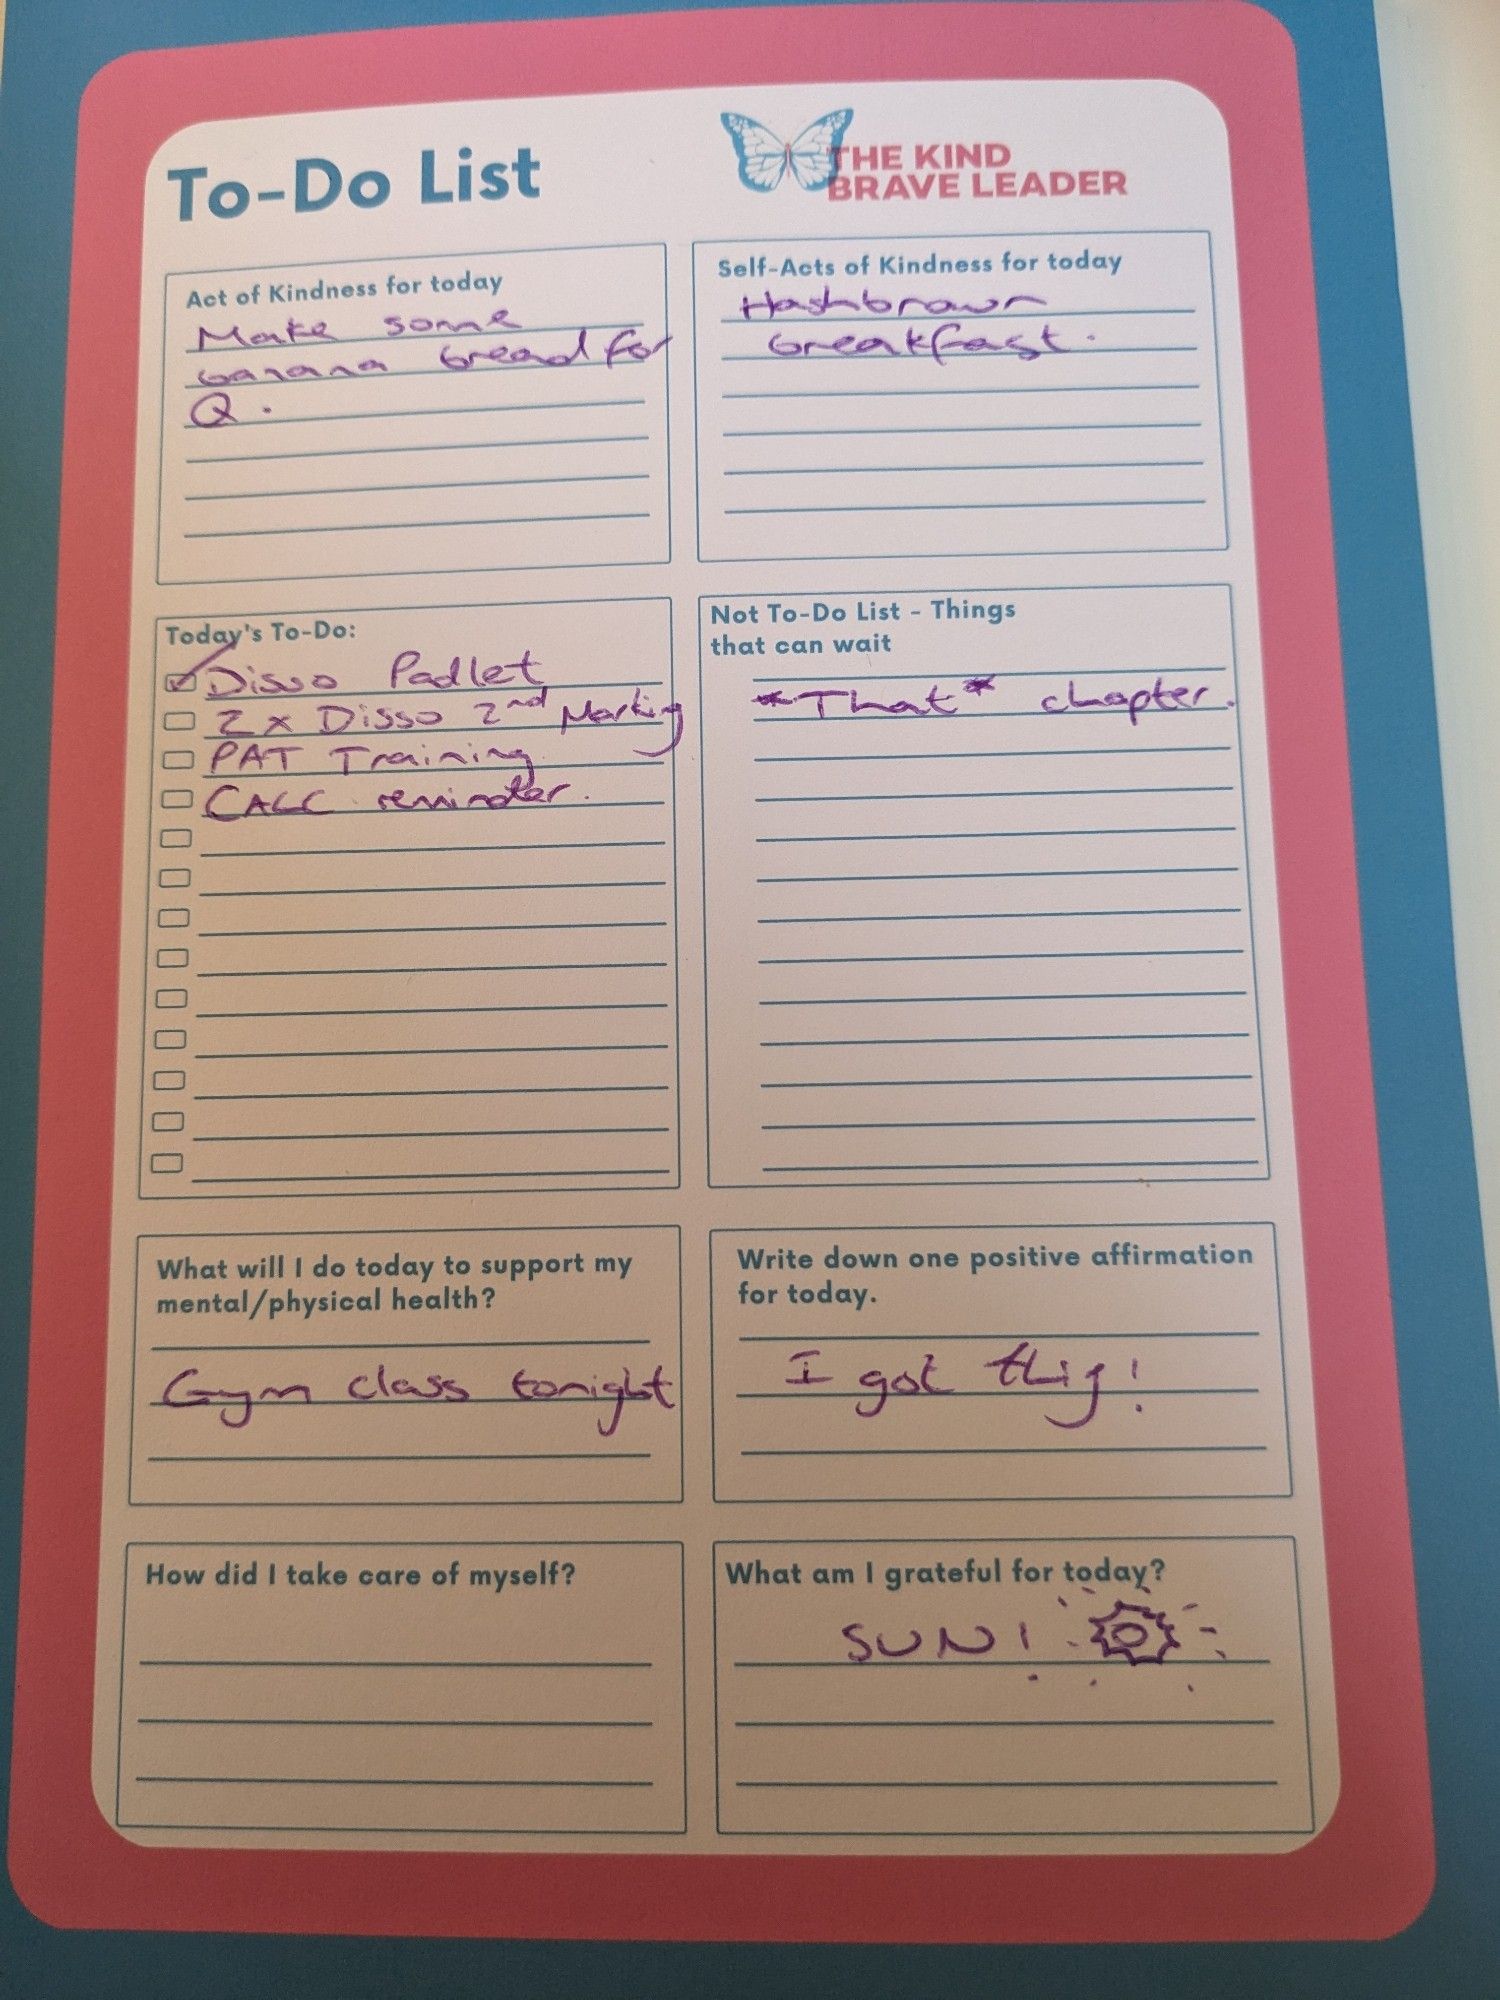 To-Do List
THE KIND
BRAVE LEADER
Act of Kindness for today
Make some
banana bread for
Q.
Self-Acts of Kindness for today
Hashbrown
breakfast.
Today's To-Do:
Disso Padlet
2 x Disso 2nd Marking
PAT Training
CALC reminder.
Not To-Do List - Things
that can wait
*That* chapter.
What will I do today to support my
mental/physical health?
Gym class tonight
Write down one positive affirmation
for today.
I got this!
How did I take care of myself?
What am I grateful for today?
SUN!